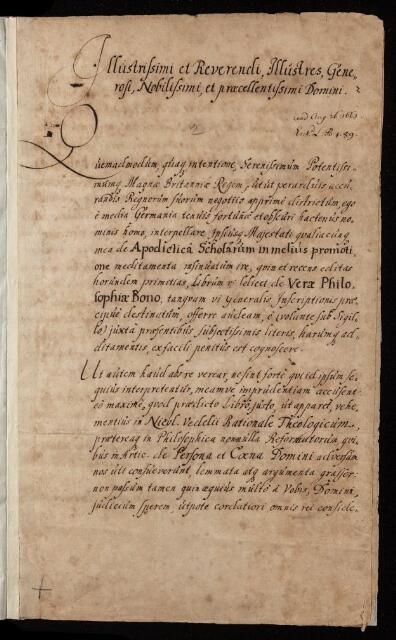 Illustrissimi et Reverendi, Illustres, Gene-
rosi, Nobilissimi, et præcellentissimi Domini.
read Aug 26 1663
L. B. 1. 89.
uemadmodum, quaq intentione, Serenissimum Potentissi-
mumq Magnæ Britanniæ Regem, ut ut perarduis accu-
randis Regnorum suorum negotiis apprimè districtum, ego
è media Germania tenuis fortunæ et obscuri hactenus no-
minis homo, interpellare, ipsiusq Majestati qualiacunq
mea de Apodictica Scholarum in melius promoti-
one meditamenta insinuatum ire, quin et recens editas
horundem primitias, Librum videlicet de Veræ Philo-
sophiæ Bono, tanquam vi generalis Inscriptionis præ-
cipuè destinatum, offerre audeam, è (volante sub Sigil-
lo) juxta præsentibus subjectissimis literis, harumq ad-
ditamentis, ex facili penitus est cognoscere.
Ut autem haud ab re verear, ne sint fortè qui id ipsum se-
quius interpretentur, meamve imprudentiam accusent
eò maximè, quod prædicto Libro, justo, ut apparet, vehe-
mentius in Nicol. Vedelii Rationale Theologicum,
prætereaq in Philosophica nonnulla Reformatorum, qui-
bus in Artic. de Persona et Cœna Domini adversùm
nos uti consueverunt, lemmata atq argumenta grassor:
non possum tamen quin æquius multò à Vobis, Domini,
judicium sperem, utpote cordatiori omnis rei conside-